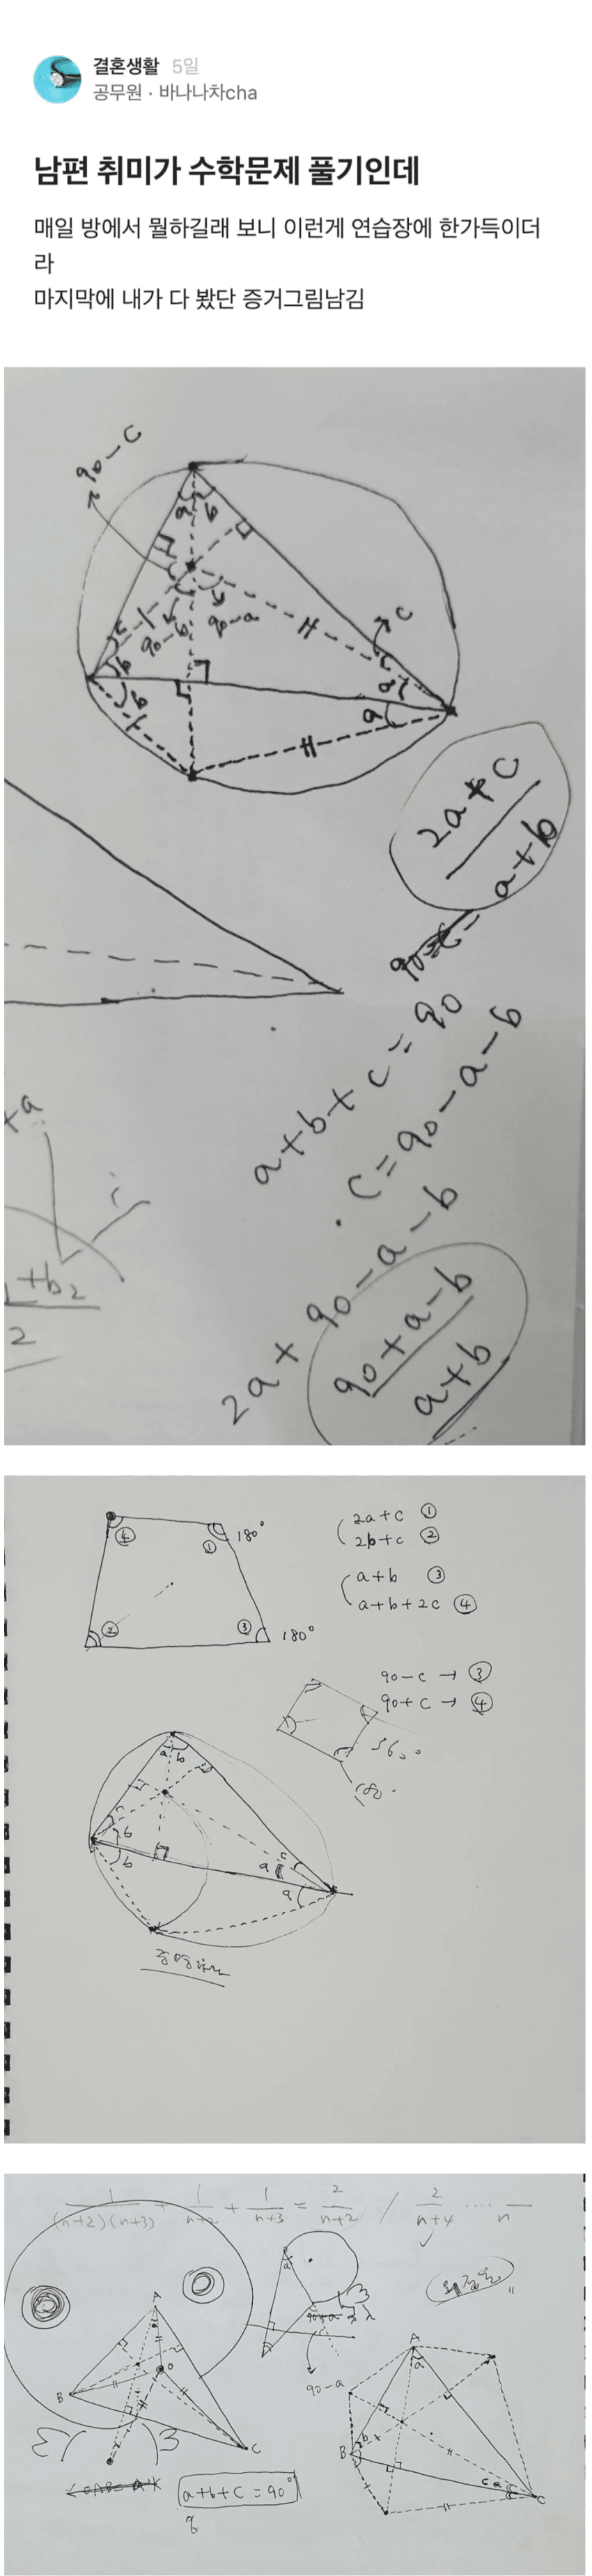 결혼생활 5일
공무원 · 바나나차cha
남편 취미가 수학문제 풀기인데
매일 방에서 뭘하길래 보니 이런게 연습장에 한가득이더
라
마지막에 내가 다 봤단 증거그림남김
90-c
a b
c
90-b 90-a
c
b
b
a
a
2a+c
a+b
a+b+c=90
c=90-a-b
2a+90-a-b
90+a-b
a+b
+a
+b2
2
④ ① 180°
② ③ 180°
2a+c ①
2b+c ②
a+b ③
a+b+2c ④
90-c → ③
90+c → ④
360°
180°
a b
c
b
b
c
a
a
1/(n+2)(n+3) + 1/n+2 + 1/n+3 = 2/n+2 / 2/n+4 .... n
a
90-a
A
O
B
C
a+b+c=90°
A
a
b
B
c a
C